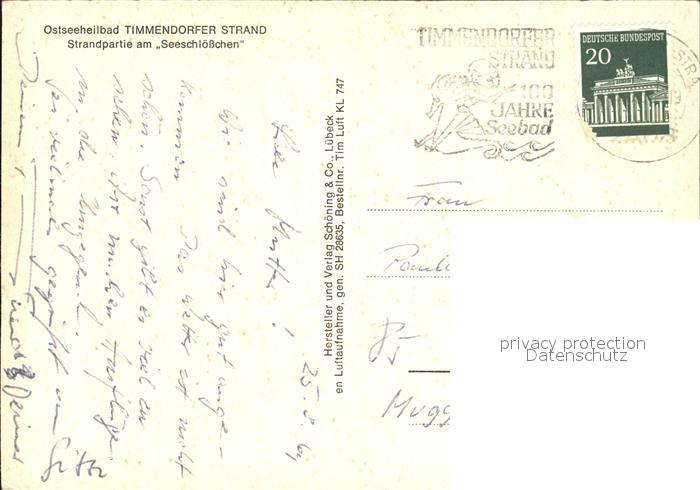 Ostseeheilbad TIMMENDORFER STRAND
Strandpartie am „Seeschlößchen"
TIMMENDORFER
STRAND
100
JAHRE
Seebad
DEUTSCHE BUNDESPOST
20
Hersteller und Verlag Schöning & Co., Lübeck
en Luftaufnahme, gen. SH 28635, Bestellnr. Tim Luft KL 747
Liebe Mutter!
Wir sind hier gut ange-
kommen. Das Wetter ist nicht
schön. Sonst gibt es viel zu
sehen. Wir machen Ausflüge
in die Umgegend.
Sei vielmals gegrüßt von
Deinem
und Deiner
Frau
Mugg
privacy protection
Datenschutz